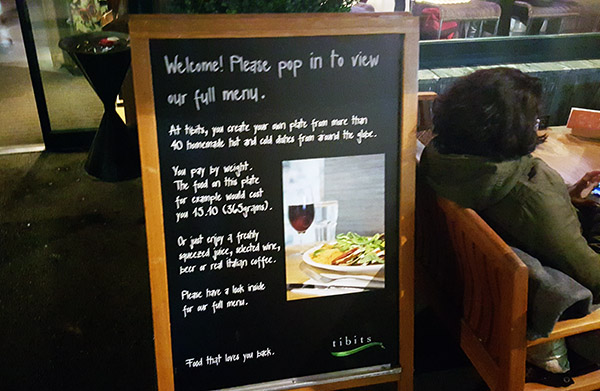 Welcome! Please pop in to view
our full menu.
At tibits, you create your own plate from more than
40 homemade hot and cold dishes from around the globe.
You pay by weight.
The food on this plate
for example would cost
you £5.10 (365grams).
Or just enjoy a freshly
squeezed juice, selected wine,
beer or real Italian coffee.
Please have a look inside
for our full menu.
Food that loves you back.
tibits